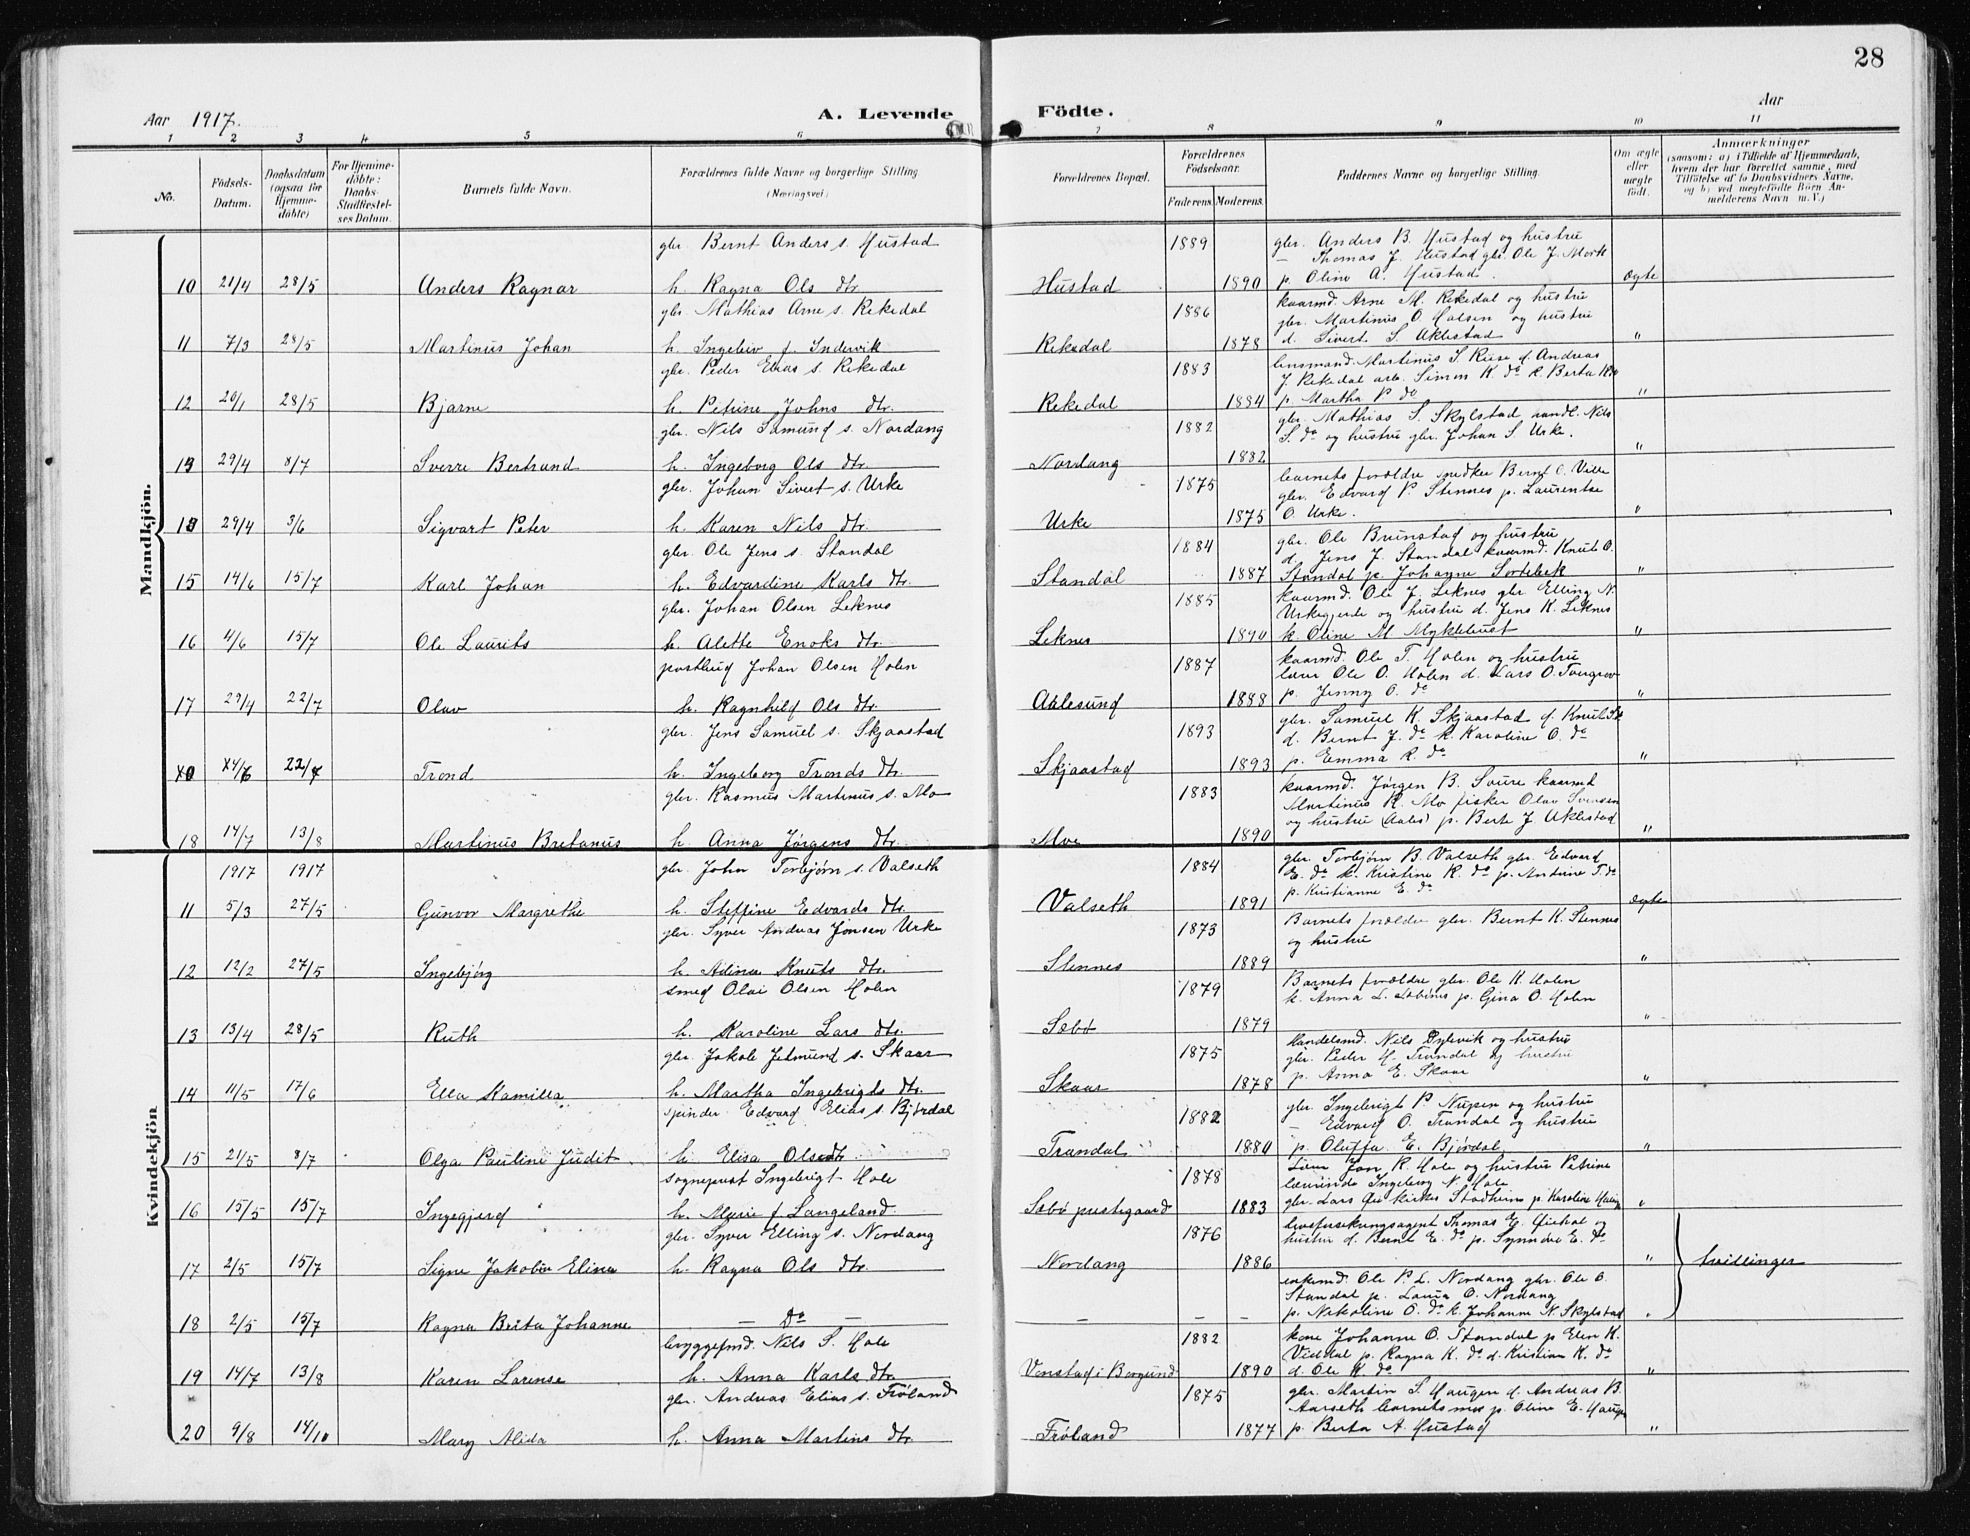 28
Aar 1917.
A. Levende Födte.
Aar
1 2 3 4 5 6 7 8 9 10 11
No.
Födsels-Datum.
Daabsdatum (ogsaa for Hjemme-döbte)
For Hjemme-döbte: Daabs-Stadfæstel-ses Datum.
Barnets fulde Navn.
Forældrenes fulde Navne og borgerlige Stilling (Næringsvei)
Forældrenes Bopæl.
Forældrenes Födselsaar.
Faderens. Moderens.
Faddernes Navne og borgerlige Stilling.
Om ægte eller uægte födt.
Anmærkninger
(saasom: a) i Tilfælde af Hjemmedaab,
hvem der har forrettet samme, med
Tilföielse af to Daabsvidners Navne,
og b) ved uegtefödte Börn An-
melderens Navn m. V.)
Mandkjön.
gbr. Bernt Anders s. Hustad 1889 gbr. Anders B. Hustad og hustru
— Thomas J. Hustad gbr. Ole J. Mork
10 21/4 28/5 Anders Ragnar h. Ragna Ols dtr. Hustad 1890 p. Oline A. Hustad. ægte
gbr. Mathias Arne s. Rekedal 1886 kaarmd. Arne M. Rekedal og hustru
gbr. Martinus O. Halsen og hustru
11 7/3 28/5 Martinus Johan h. Ingebor f. Indervik Rekedal 1878 d. Sivert S. Aklestad "
gbr. Peder Elias s. Rekedal 1883 lensmand Martinus S. Ruse d. Andreas
J. Rekedal arb. Simon K. do k. Berta
12 20/1 28/5 Bjarne h. Petrine Johns dtr. Rekedal 1884 p. Martha P. do "
gbr. Nils Samund s. Nordang 1882 gbr. Mathias S. Skylstad Nils
S. do og hustru gbr. Johan S. Urke.
13 29/4 8/7 Sverre Bertrand h. Ingeborg Ols dtr. Nordang 1882 "
gbr. Johan Sivert s. Urke 1875 barnets forældre snedker Bernt O. Ville
gbr. Edvard P. Stennes p. Laurentse
13 29/4 3/6 Sigvart Peter h. Karen Nils dtr. Urke 1875 O. Urke. "
gbr. Ole Jens s. Standal 1884 gbr. Ole Brunstad og hustru
d. Jens J. Standal kaarmd. Knut O.
15 14/6 15/7 Karl Johan h. Edvardine Karls dtr. Standal 1887 Standal p. Johanne Sortebek "
gbr. Johan Olsen Leknes 1885 kaarmd. Ole J. Leknes gbr. Elling N.
Urkegjerde og hustru d. Jens K. Leknes
16 4/6 15/7 Ole Laurits h. Alette Enoks dtr. Leknes 1890 k. Oline M. Myklebust "
postbud Johan Olsen Holen 1887 kaarmd. Ole T. Holen og hustru
lærer Ole O. Holen d. Lars O.
17 29/4 22/7 Olav h. Ragnhild Ols dtr. Aalesund 1888 p. Jenny O. do "
gbr. Jens Samuel s. Skjaastad 1893 gbr. Samuel K. Skjaastad d. Knut
d. Bernt J. do k. Karoline O. do
22/7 Trond h. Ingeborg Tronds dtr. Skjaastad 1893 p. Emma R. do "
gbr. Rasmus Martinus s. Mo 1883 kaarmd. Jørgen B. Saure kaarmd
Martinus R. Mo fisker Olav Svensen
18 14/7 13/8 Martinus Bretanus h. Anna Jørgens dtr. Moe 1890 og hustru (Aales) p. Berte J. Aklestad "
Kvindekjön
1917 1917 gbr. John Torbjørn s. Valseth 1884 gbr. Torbjørn B. Valseth gbr. Edvard
E. do k. Kristine K. do p. Andrine T. do
11 5/3 27/5 Gunvor Margrethe h. Steffine Edvards dtr. Valseth 1891 p. Kristianne E. do ægte
gbr. Syver Andreas Jonsen Urke 1873 Barnets forældre gbr. Bernt K. Stennes
og hustru
12 12/2 27/5 Ingebjørg h. Adina Knuts dtr. Stennes 1889 "
smed Olai Olsen Holen 1879 Barnets forældre gbr. Ole K. Holen
k. Anna L. p. Gina O. Holen
13 13/4 28/5 Ruth h. Karoline Lars dtr. Sebø 1879 "
gbr. Jakob Jetmund s. Skaar 1875 Handelsmd. Nils Dylevik og hustru
gbr. Peder H. Trandal og hustru
14 11/5 17/6 Ella Kamilla h. Martha Ingebrigts dtr. Skaar 1878 p. Anna E. Skaar "
spinder. Edvard Elias s. Bjørdal 1882 gbr. Ingebrigt P. Nupen og hustru
— Edvard O. Trandal og hustru
15 21/5 8/7 Olga Pauline Judit h. Elisa Olsdtr. Trandal 1880 p. Oluffa E. Bjørdal "
sogneprest Ingebrigt Hole 1878 Lærer Jon R. Hole og hustru Petrine
lærerinde Ingeborg N. Hole
16 15/5 15/7 Ingegjerd h. Marie f. Langeland Sebø prestegaard 1883 gbr. Lars Stadheim p. Karoline "
gbr. Syver Elling s. Nordang 1876 livsforsikringsagent Thomas E. Øiehal og
hustru d. Bernt E. do p. Synnøve E. do
17 2/5 15/7 Signe Jakobie Elina h. Ragna Ols dtr. Nordang 1886 " tvillinger
enkemd. Ole P. L. Nordang gbr. Ole O.
Standal p. Laura O. Nordang
18 2/5 15/7 Ragna Berta Johanne — Do — — — — p. Nikoline O. do k. Johanne N. Skylstad "
bryggefmd. Nils S. Hole 1882 kone Johanne O. Standal p. Elen K.
Viddal p. Ragna K. do d. Kristian K. do
19 14/7 13/8 Karen Larense h. Anna Karls dtr. Vonstad i Borgund 1890 d. Ole K. do "
gbr. Andreas Elias s. Frøland 1875 gbr. Martin S. Haugen d. Andreas B.
Aarseth barnets mor p. Oline E. Haugen
20 9/8 14/10 Mary Alida h. Anna Martins dtr. Frøland 1877 p. Berta A. Hustad "